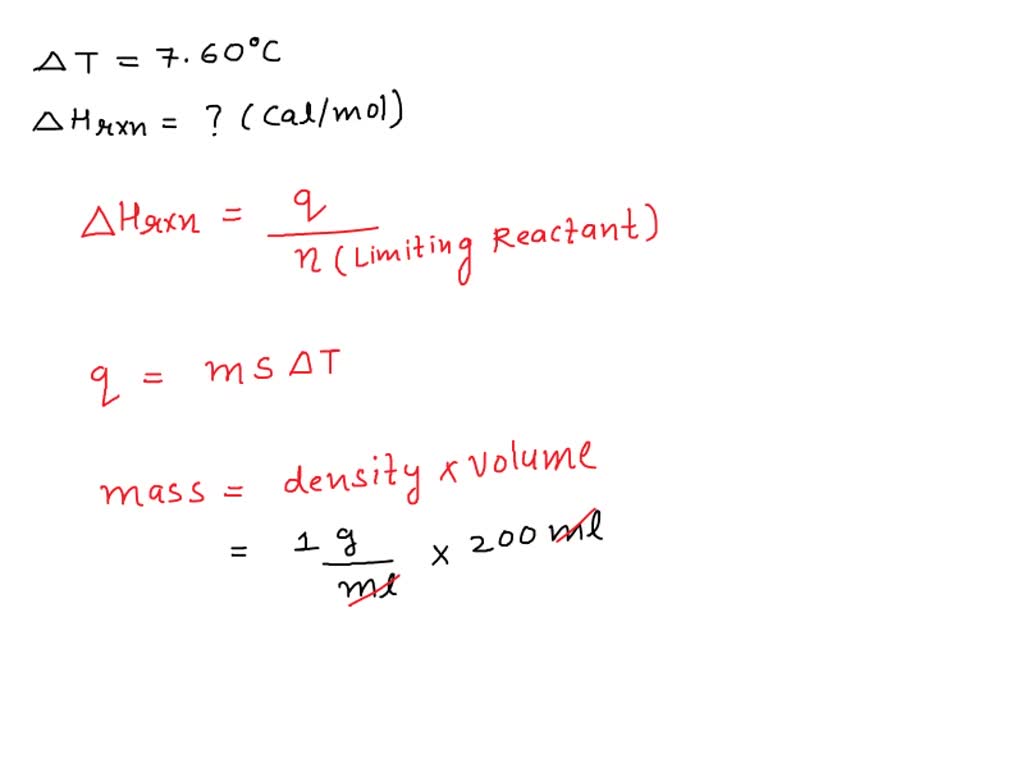 ΔT = 7.60°C
ΔHrxn = ? (cal/mol)
ΔHrxn = q / n (Limiting Reactant)
q = ms ΔT
mass = density x volume
= 1 g / ml x 200 ml